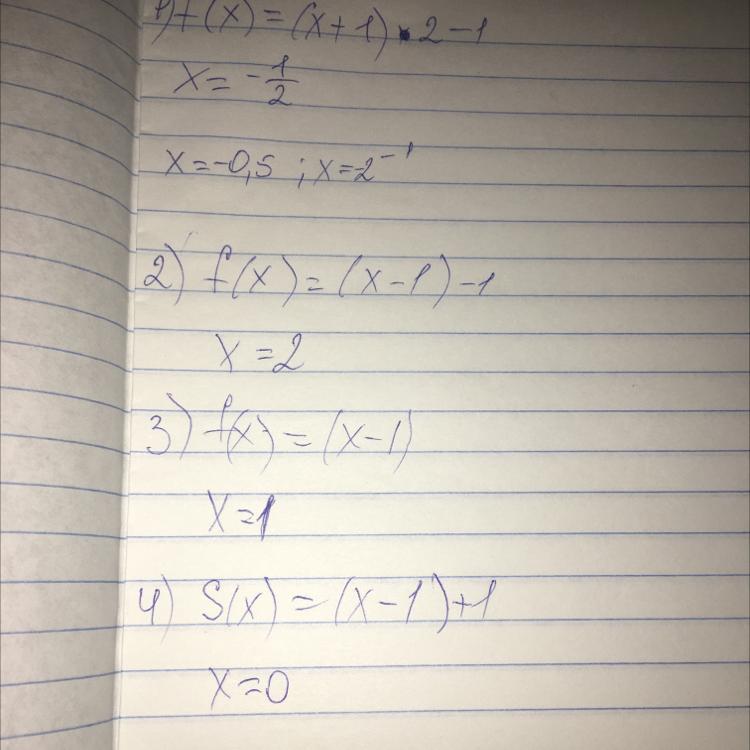 1) f(x) = (x+1) • 2 - 1
x = -1/2
x = -0,5 ; x = -2⁻¹
2) f(x) = (x-1) - 1
x = 2
3) f(x) = (x-1)
x = 1
4) S(x) = (x-1) + 1
x = 0